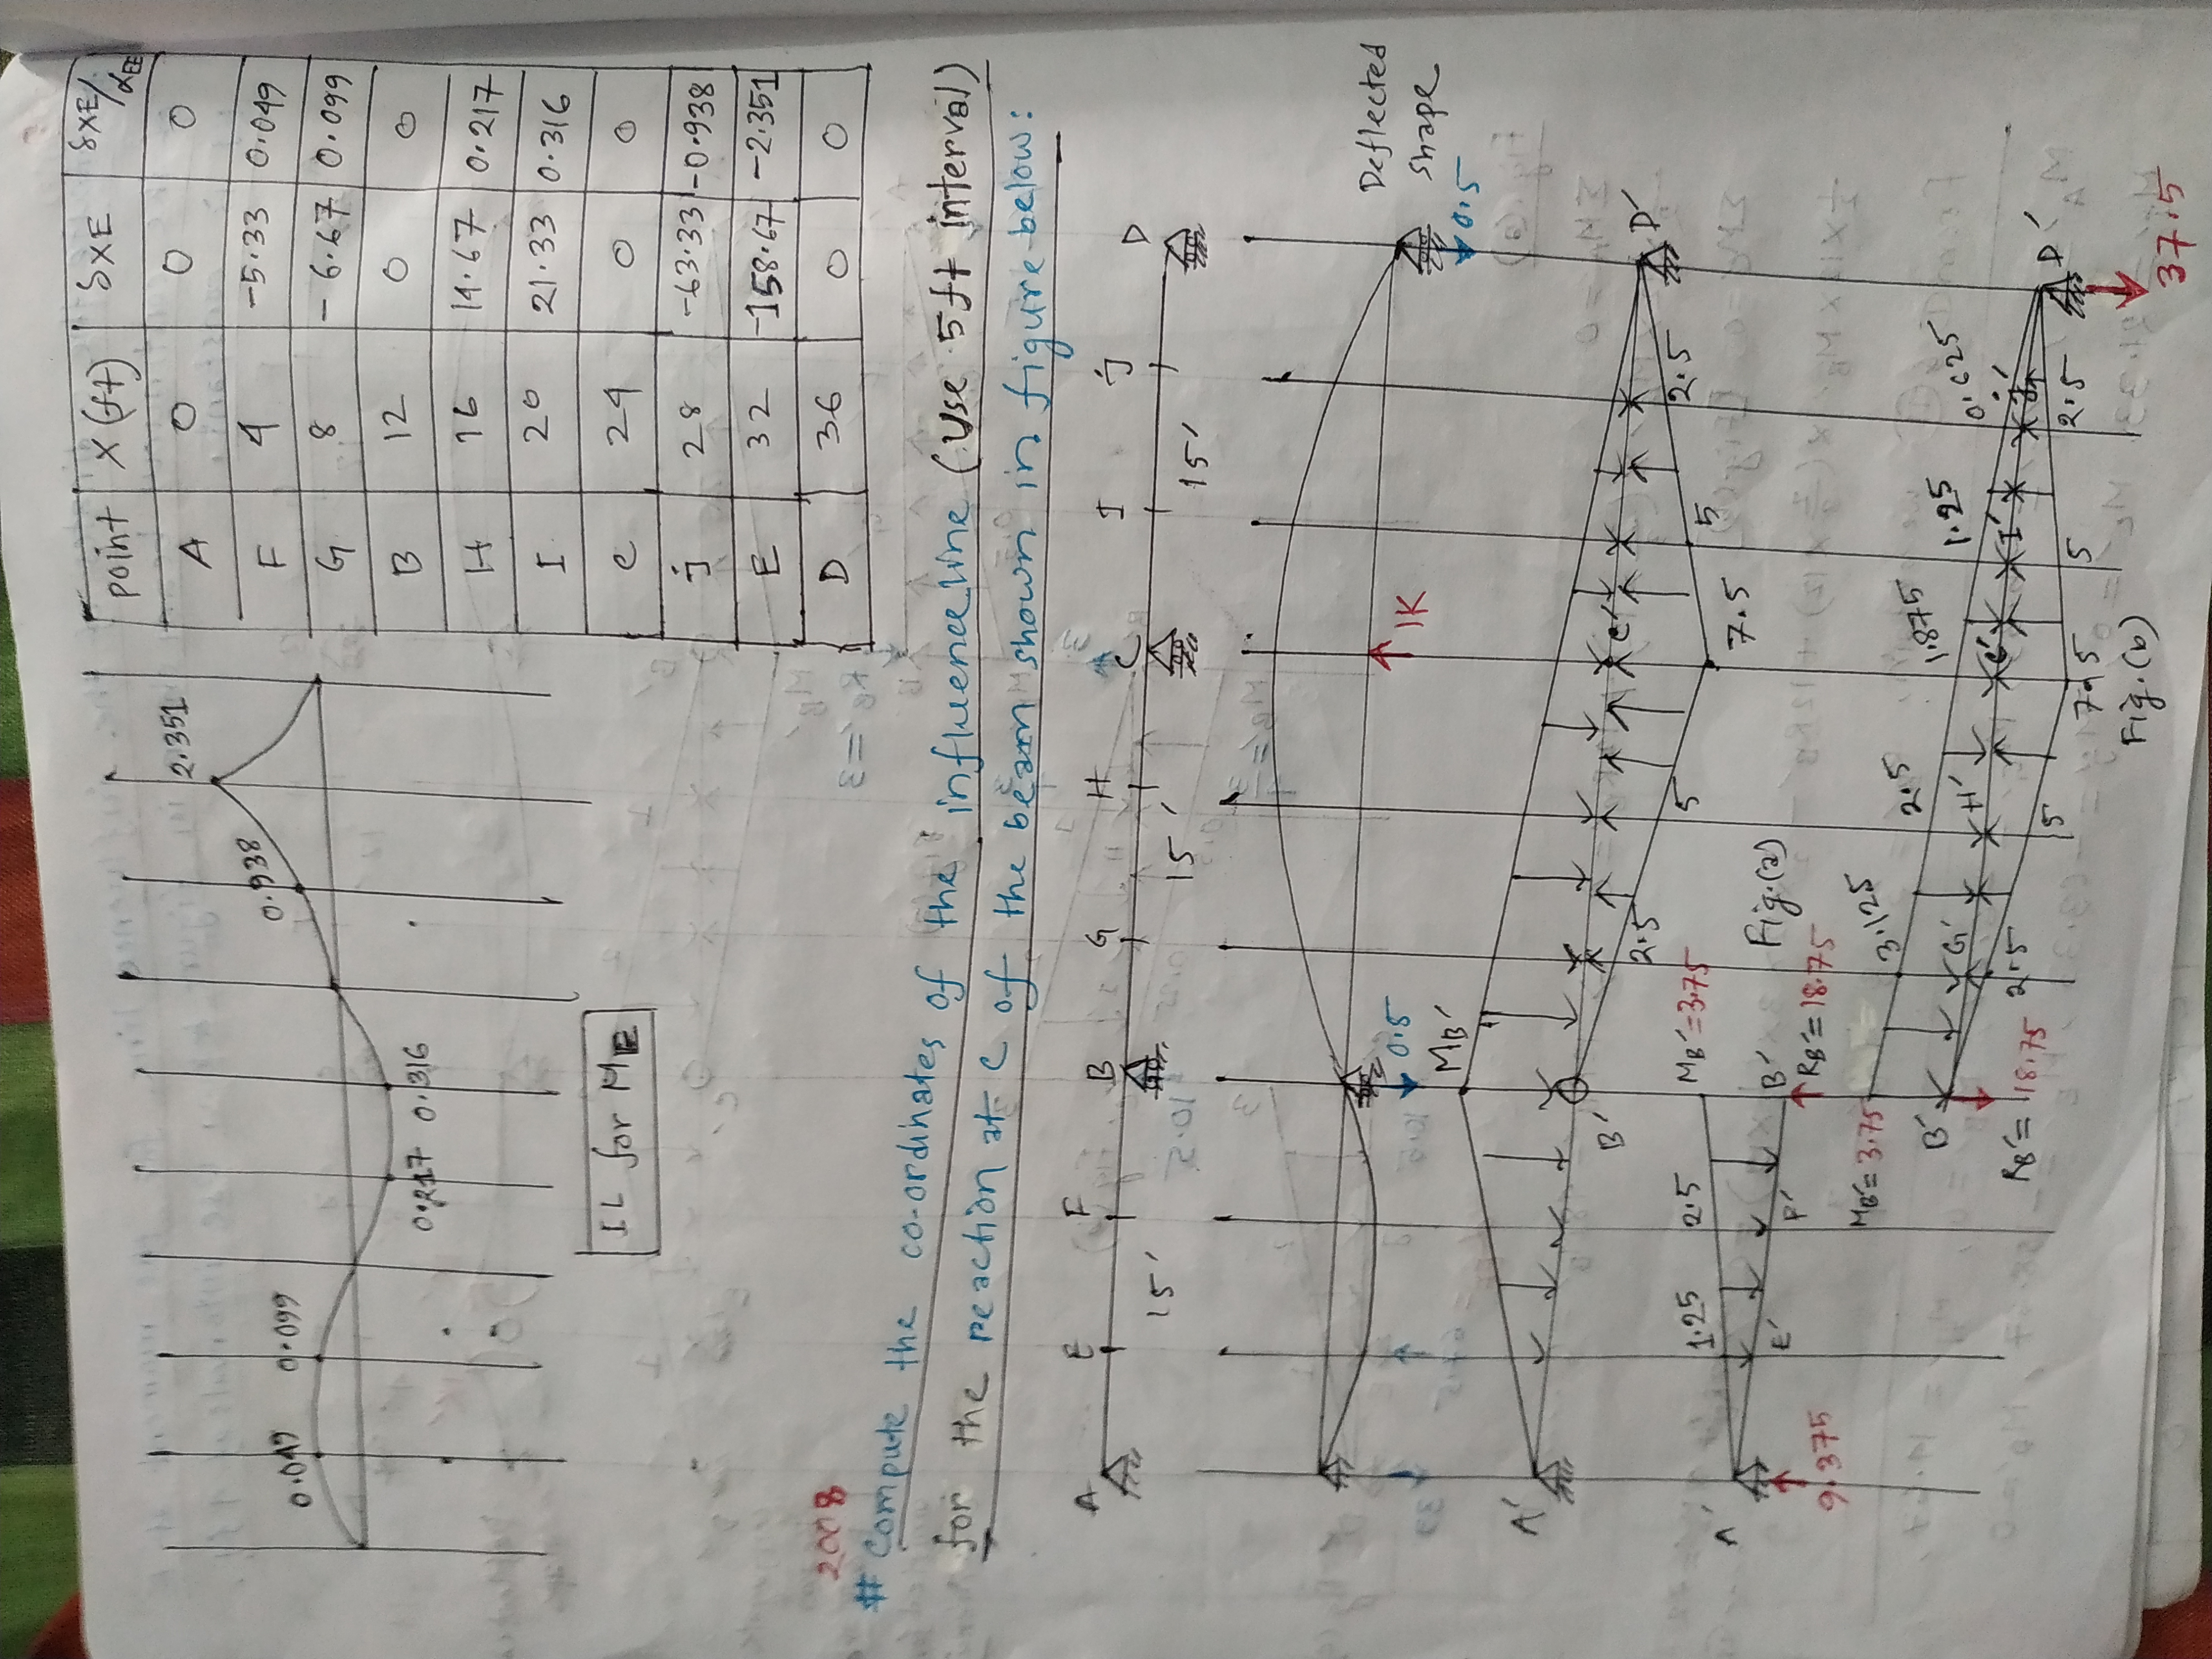 point X(ft) δXE δXE/αEE
A 0 0 0
F 4 -5.33 0.049
G 8 -6.67 0.099
B 12 0 0
H 16 14.67 0.217
I 20 21.33 0.316
C 24 0 0
j 28 -63.33 -0.938
E 32 -158.67 -2.351
D 36 0 0
0.049 0.099 0.217 0.316 0.938 2.351
IL for ME
2008
# Compute the co-ordinates of the influence line (Use 5ft interval)
for the reaction at C of the beam shown in figure below:
A E F B G H C I j D
15' 15' 15'
Deflected
shape
0.5 1K 0.5
MB'
A' B' C' D'
2.5 5 7.5 5 2.5
Fig.(a)
MB'=3.75
1.25 2.5
A' E' F' B'
9.375 RB'=18.75
MB'=3.75 3.125 2.5 1.875 1.25 0.625
B' G' H' C' I' D'
RB'=18.75 2.5 5 7.5 5 2.5
37.5
Fig.(b)